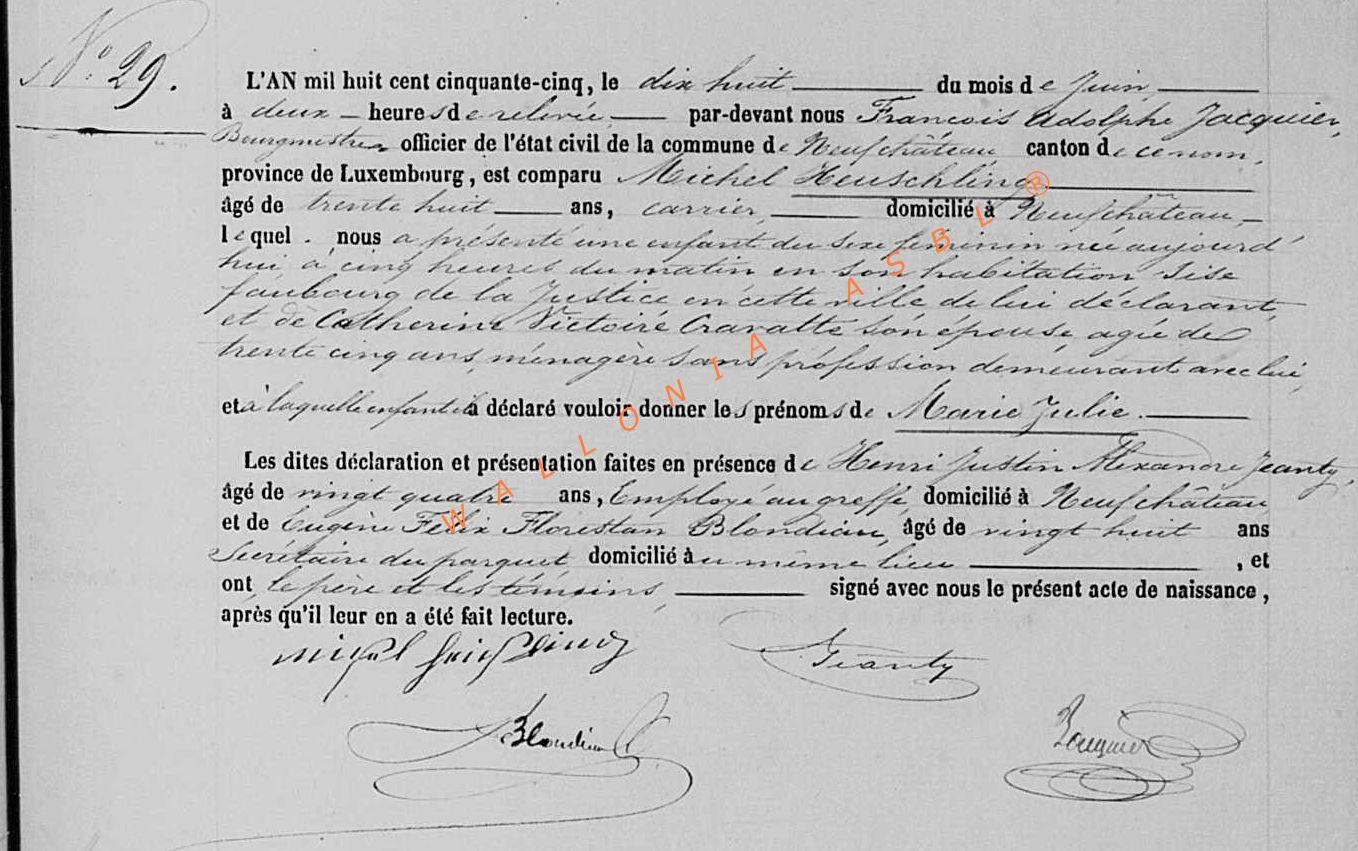 N° 29.
L'AN mil huit cent cinquante-cinq, le dix huit du mois de Juin
à deux heures de relevée, par-devant nous François Adolphe Jacquier,
Bourgmestre officier de l'état civil de la commune de Neufchâteau canton de ce nom,
province de Luxembourg, est comparu Michel Heuschling
âgé de trente huit ans, carrier, domicilié à Neufchâteau,
lequel nous a présenté une enfant du sexe feminin née aujourd'
hui, à cinq heures du matin en son habitation sise
faubourg de la Justice en cette ville de lui déclarant,
et de Catherine Victoire Cravatte son épouse, agée de
trente cinq ans, ménagère sans profession demeurant avec lui,
et à laquelle enfant il a déclaré vouloir donner les prénoms de Marie Julie.
Les dites déclaration et présentation faites en présence de Henri Justin Alexandre Jeanty,
âgé de vingt quatre ans, Employé au greffe, domicilié à Neufchâteau
et de Eugène Félix Florestan Blondiau, âgé de vingt huit ans
Secrétaire du parquet domicilié au même lieu, et
ont, le père et les témoins, signé avec nous le présent acte de naissance,
après qu'il leur en a été fait lecture.
Michel Heuschling Jeanty
Blondiau Jacquier
WALLONIA ASBL ®